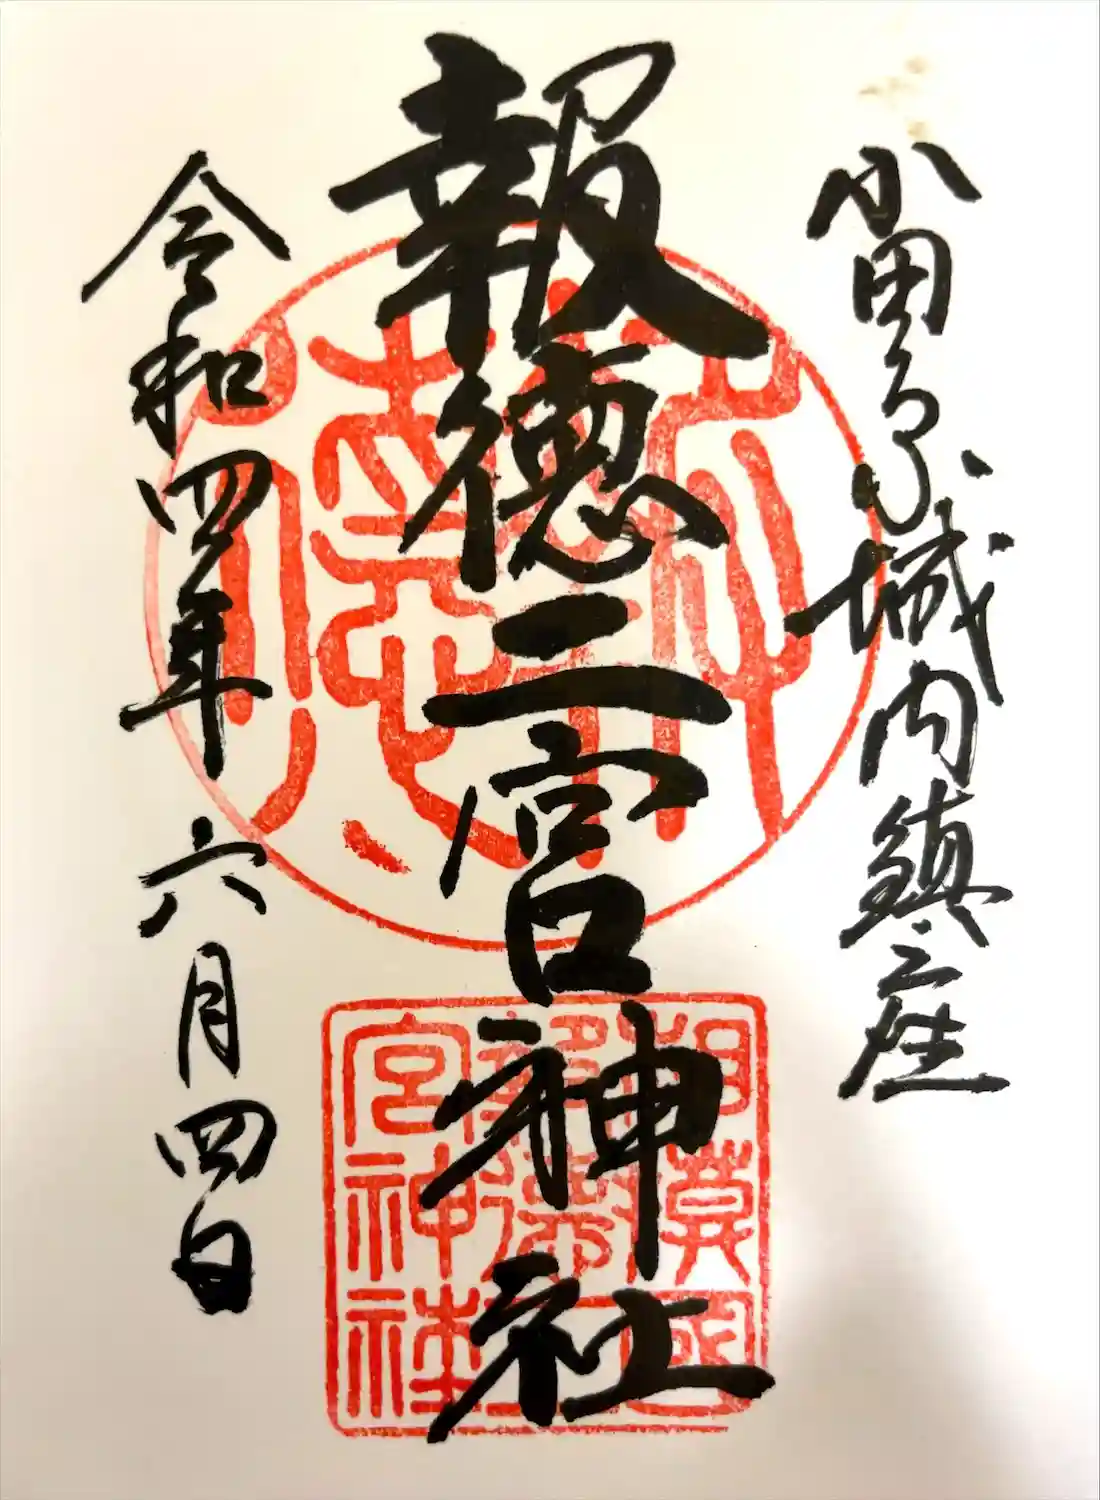 小田原城内鎮座
報徳二宮神社
令和四年 六月四日
相模國報德二宮神社